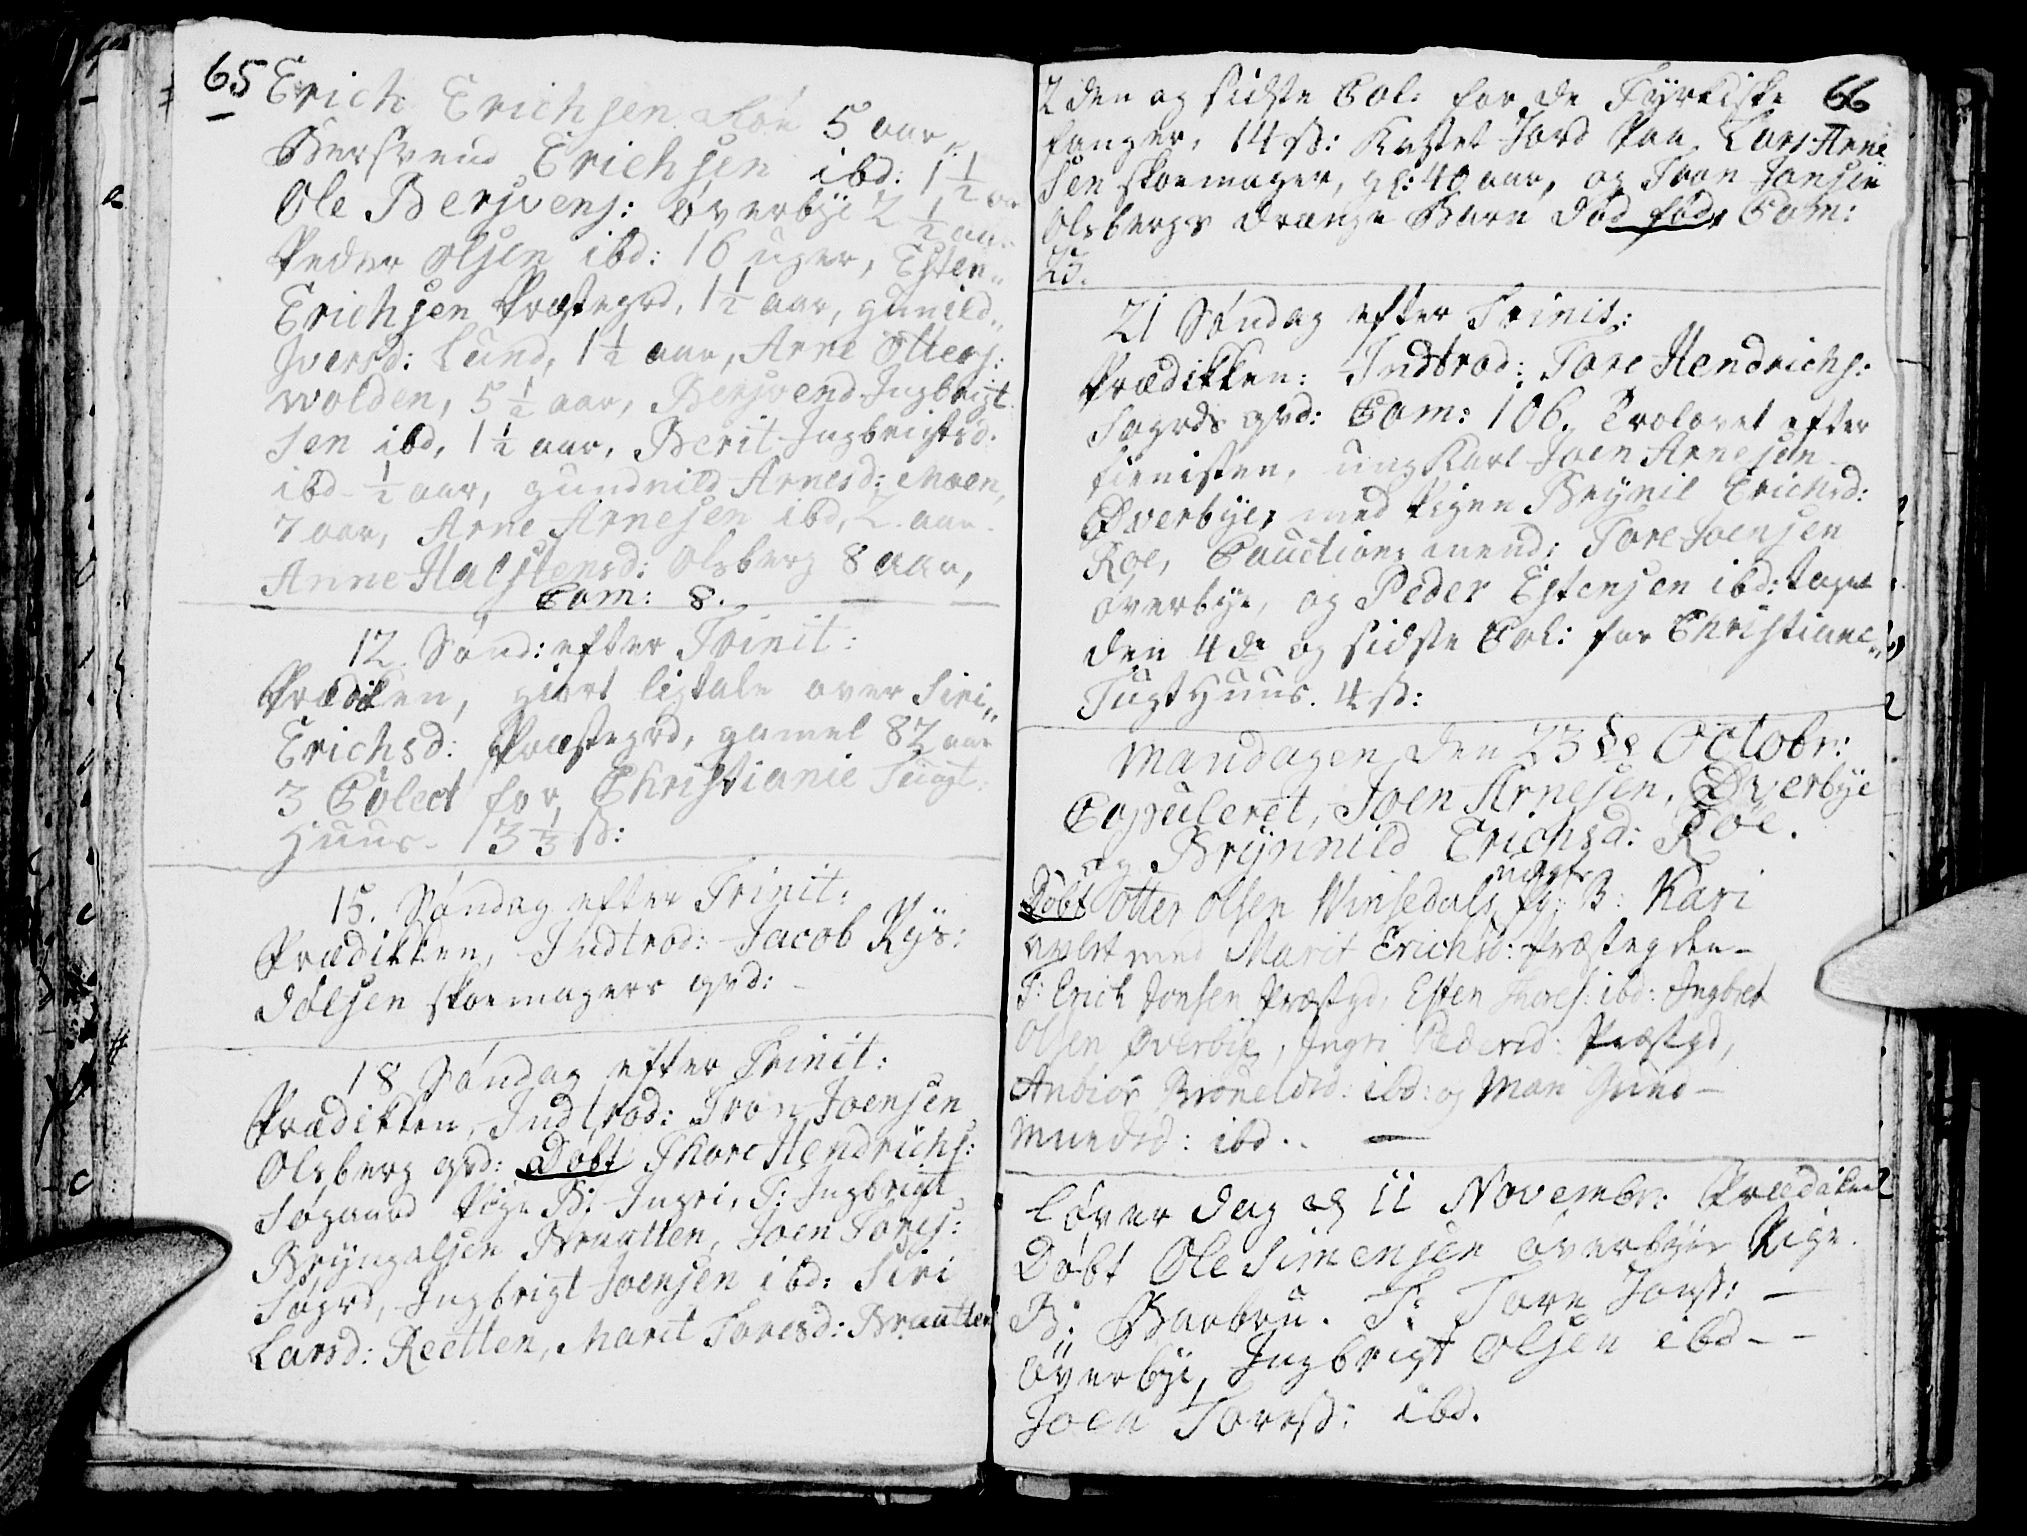 65
Erich Erichsen Roe 5 aar,
Bersvend Erichsen ibd: 1 1/2 aar
Ole Bersvens: øverbye 2 1/2 aar
Peder Olsen ibd: 16 uger, Esten
Erichsen Præstegrd, 1 1/2 aar, gunild
Iversd: Lund, 1 1/2 aar, Arne Otters:
wolden, 5 1/2 aar, Bersvend Ingbrigt
sen ibd, 1 1/2 aar, Berit Ingbrigtsd:
ibd 1/2 aar, gundnild Arnesd: Moen,
7 aar, Arne Arnesen ibd, 2 aar.
Anne Halstensd: Olsberg 8 aar,
Com: 8.
12 Sønd: efter Trinit:
Prædiken, giort ligtale over Siri
Erichsd: Præstegrd, gamel 82 aar
3 Colect for Christianie Tugt:
Huus. 13 1/3 sk:
15. Søndag efter Trinit:
Prædikken, Indtrod: Jacob Rys:
Dølsen skoemagers qvd:
18 Søndag efter Trinit:
Prædikken, Indtrod: Tron Joensen
Olsberg qvd: Døbt Thore Hendrichs:
Søgaard Pige B: Ingri, T: Ingbrigt
Bryngelsen Braatten, Joen Tores:
Søgrd, Ingbrigt Joensen ibd: Siri
Larsd: Reetten, Marit Toresd: Braatten
66
2den og sidste Col: for de Tyrkiske
fanger, 14 sk: Kastet Jord paa Lars Arne
sen skoemager, gl: 40 aar, og Tron Jonsen
Olsbergs drænge Barn død fød, Com:
23.
21 Søndag efter Trinit:
Prædikken: Indtrod: Tore Hendrichs:
Søgrds qvd: Com: 106. Trolovet efter
tienisten, ung Karl Joen Arnesen
Øverbye, med Pigen Brynil Erichsd:
Roe, Cauctions mend: Tore Joensen
øverbye, og Peder Estensen ibd: taget
den 4de og sidste Col: for Christiane
Tugt Huus. 4 sk:
Mandagen den 23de Octobr:
Copuleret, Joen Arnesen, Øverbye
og Brynnild Erichsd: Roe.
Døbt Otter Olsen Winsedals B: Kari
avlet med Marit Erichsd: Præstegden
T: Erich Jonsen Præstgd, Esten Thores: ibd: Ingbret
Olsen Øverbye, Ingri Pedersd: Præstgd,
ibd: og Mari Gund
mundsd: ibd.
Løverdag d 11 Novembr: Prædiken
Døbt Ole Simensen øverbyes Pige
B: Barbru. T: Tore Jons:
øverbye, Ingbrigt Olsen ibd
Joen Tores: ibd.